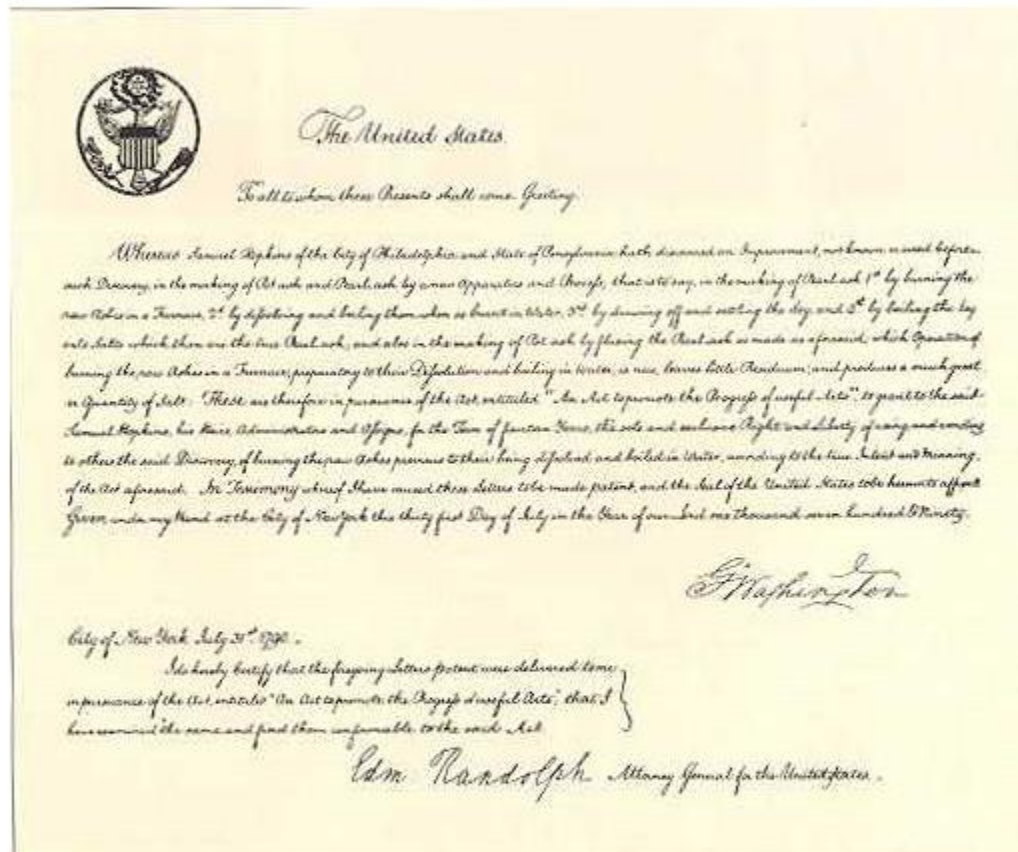 The United States.
To all to whom these Presents shall come Greeting.
Whereas Samuel Hopkins of the City of Philadelphia and State of Pensylvania hath discovered an Improvement, not known or used before
such Discovery, in the making of Pot ash and Pearl ash by a new Apparatus and Process; that is to say, in the making of Pearl ash 1st by burning the
raw Ashes in a Furnace, 2d by dissolving and boiling them when so burnt in Water, 3rd by drawing off and settling the Ley, and 4th by boiling the Ley
into Salts which then are the true Pearl ash; and also in the making of Pot ash by fluxing the Pearl ash so made as aforesaid; which Operation of
burning the raw Ashes in a Furnace, preparatory to their Dissolution and boiling in Water, is new, leaves little Residuum; and produces a much great
er Quantity of Salt: These are therefore in pursuance of the Act, entituled "An Act to promote the Progress of useful Arts", to grant to the said
Samuel Hopkins, his Heirs, Administrators and Assigns, for the Term of fourteen Years, the sole and exclusive Right and Liberty of using and vending
to others the said Discovery, of burning the raw Ashes previous to their being dissolved and boiled in Water, according to the true Intent and Meaning
of the Act aforesaid. In Testimony whereof I have caused these Letters to be made patent, and the Seal of the United States to be hereunto affixed
Given under my Hand at the City of New York this thirty first Day of July in the Year of our Lord one thousand seven hundred & Ninety.
G Washington
City of New York July 31st 1790. -
I do hereby Certify that the foregoing Letters patent were delivered to me
in pursuance of the Act, entituled "An Act to promote the Progress of useful Arts"; that I
have examined the same and find them conformable to the said Act.
Edm Randolph Attorney General for the United States.